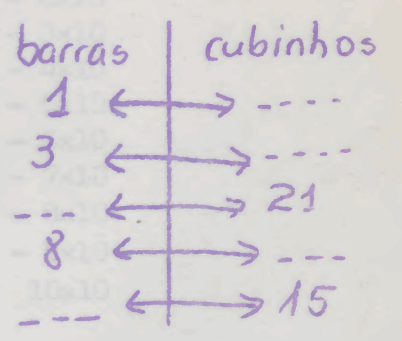 barras | cubinhos
1 ↔ ----
3 ↔ ----
--- ↔ 21
8 ↔ ---
--- ↔ 15